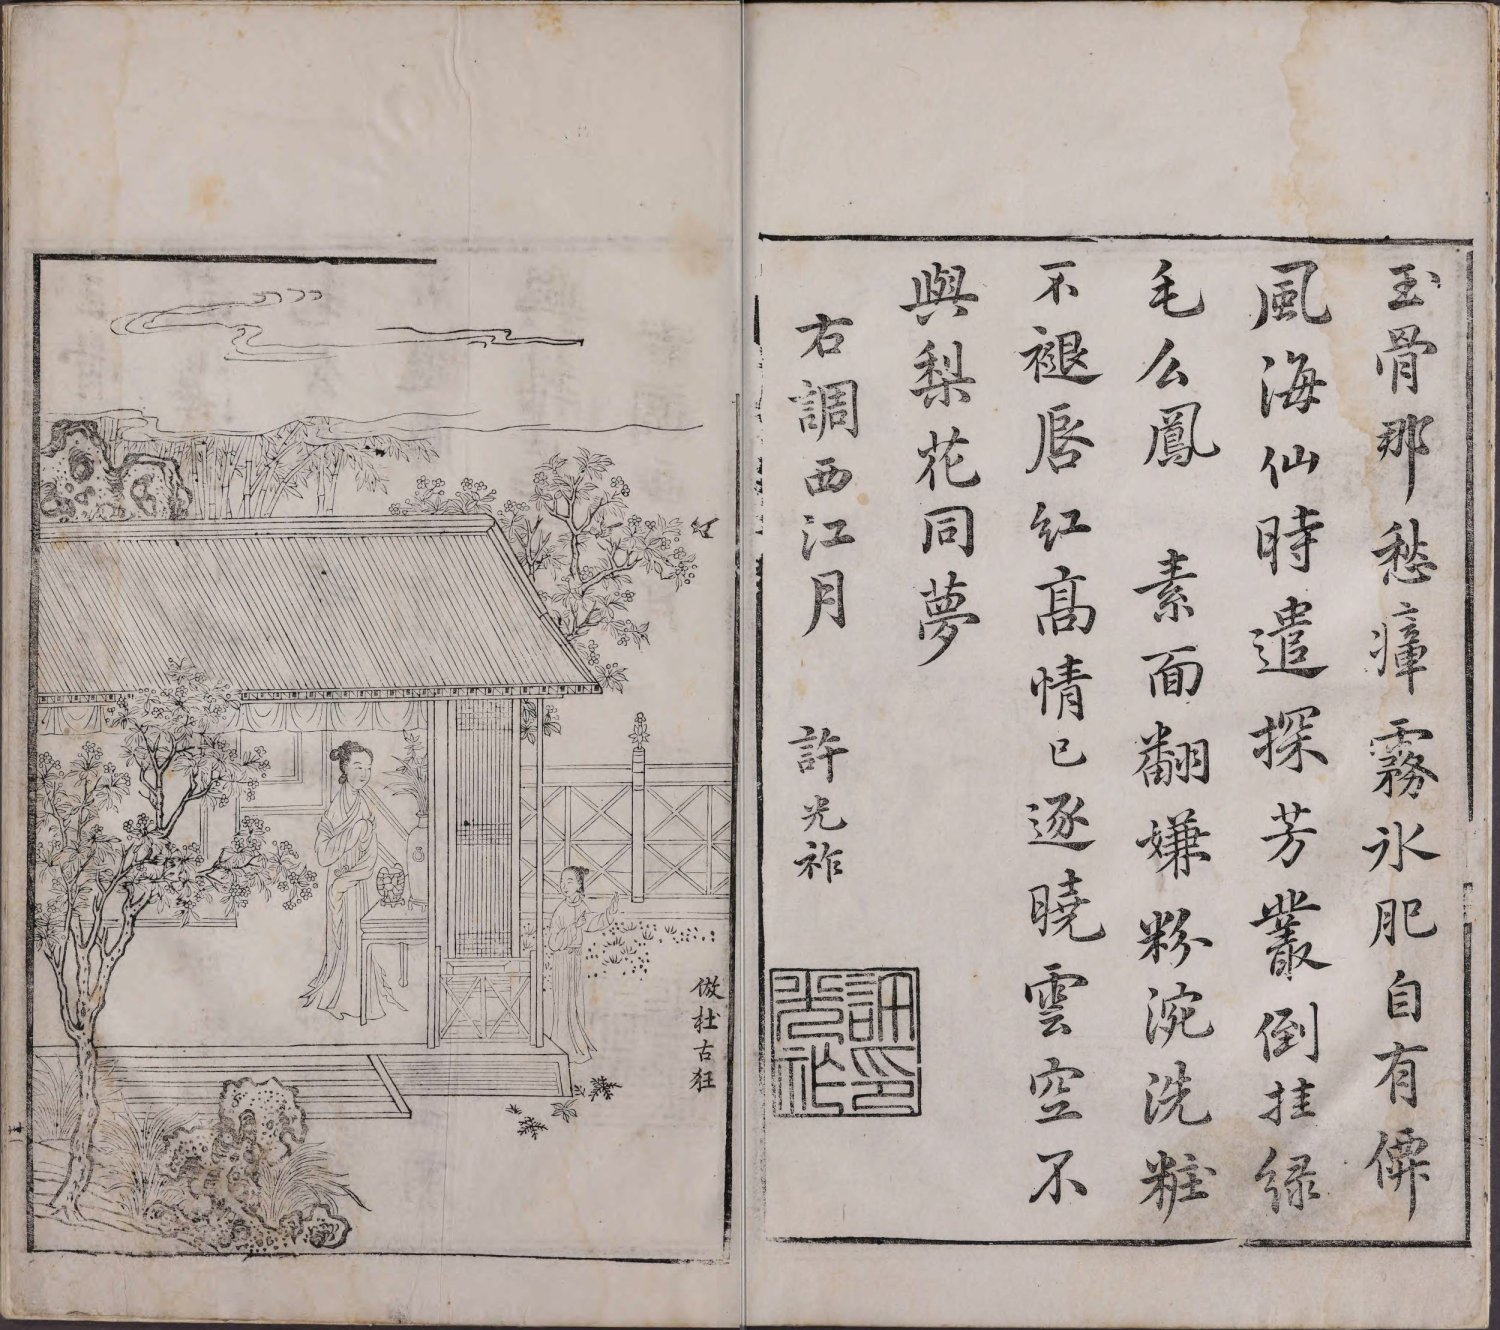 玉骨那愁瘴霧氷肥自有僊
風海仙時遣探芳叢倒挂緑
毛么鳳　素面翻嫌粉涴洗粧
不褪唇紅髙情已逐曉雲空不
與梨花同夢
右調西江月　許光祚
許光祚印
倣杜古狂